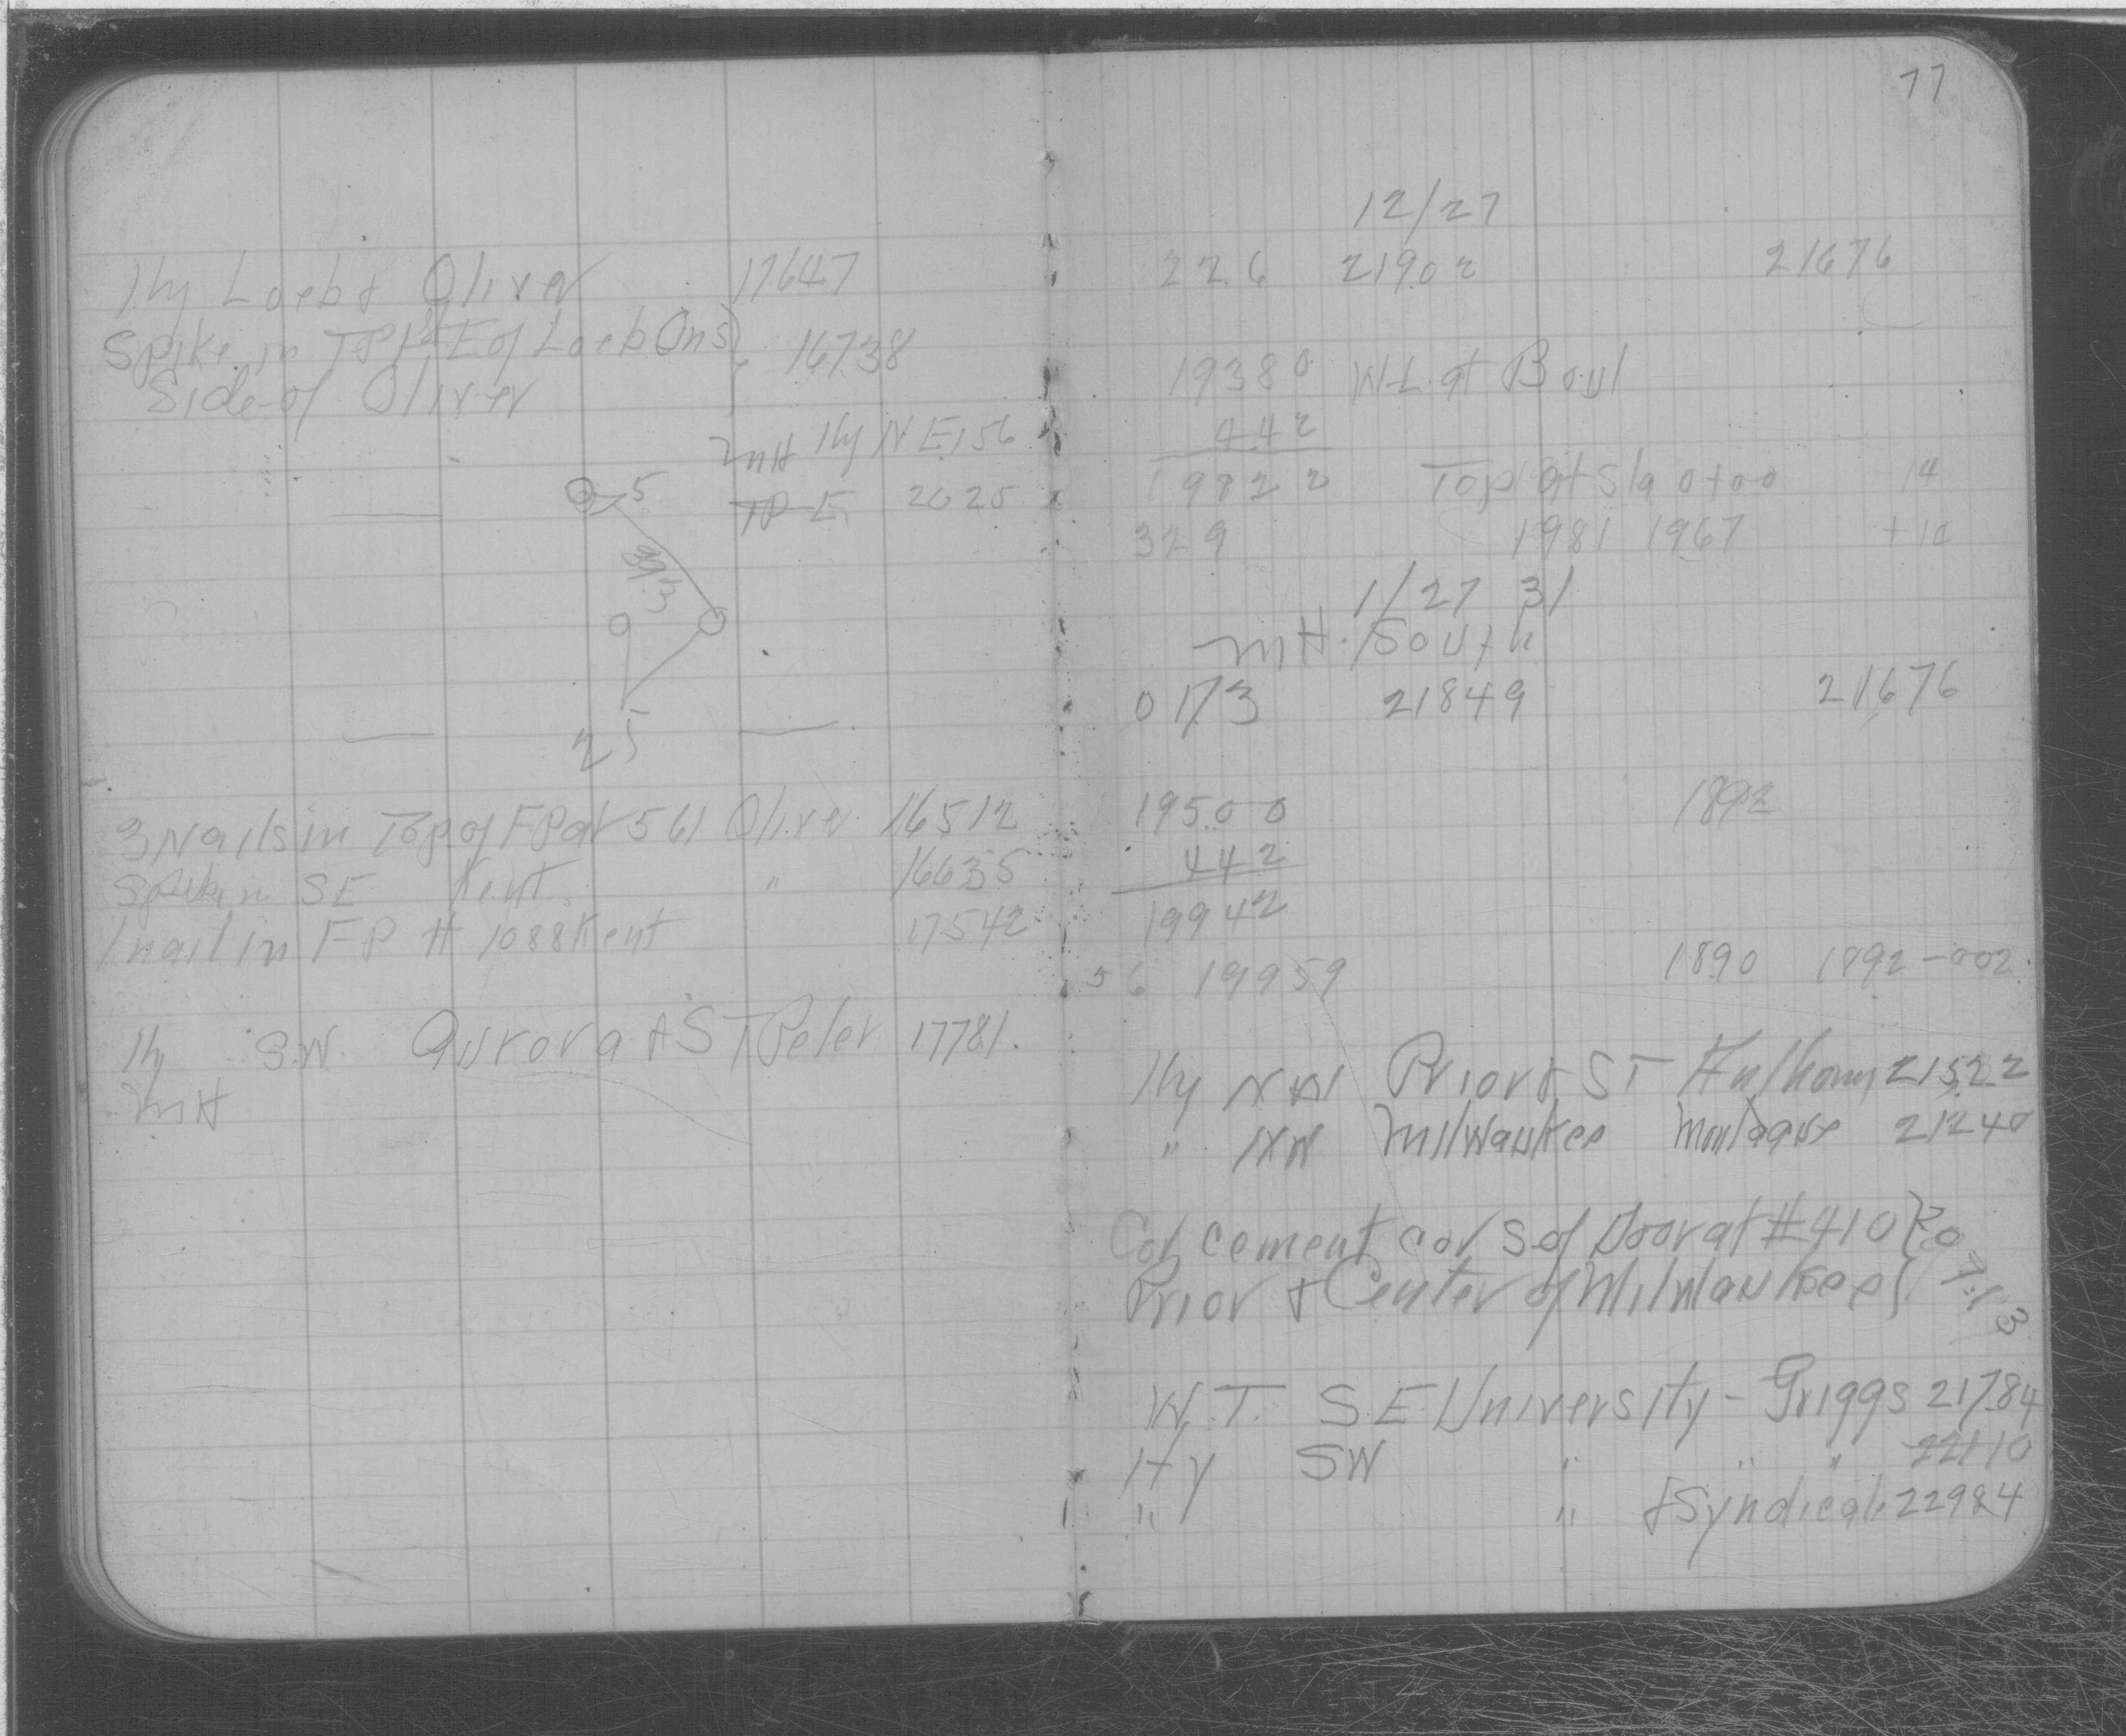 Hy Loeb & Oliver 17647
Spike in TP 1st E of Loeb On S
Side of Oliver } 16738
MH Hy NE 156
TP E 2025
5
99.3
25
3 Nails in Top of FP at 561 Oliver 16512
Spike in SE Kent " 16635
1 nail in FP # 1088 Kent 17542
Hy S.W. Aurora & ST Peter 17781.
MH
77
12/27
226 21902 21676
19380 W.L. at Boul
442
19822 Top at Sta 0+00 14
329 1981 1967 +14
1/27 31
MH. South
0173 21849 21676
19500 1892
442
19942
56 19959 1890 1892 -002.
Hy NW Prior & ST Anthony 21522
" NW Milwaukee Montague 21240
Cor cement cor S of Door at #410 } 20713
Prior & Center of Milwaukee
W.T. S.E. University - Griggs 21784
Hy SW " " " 22110
" " & Syndicate 22984